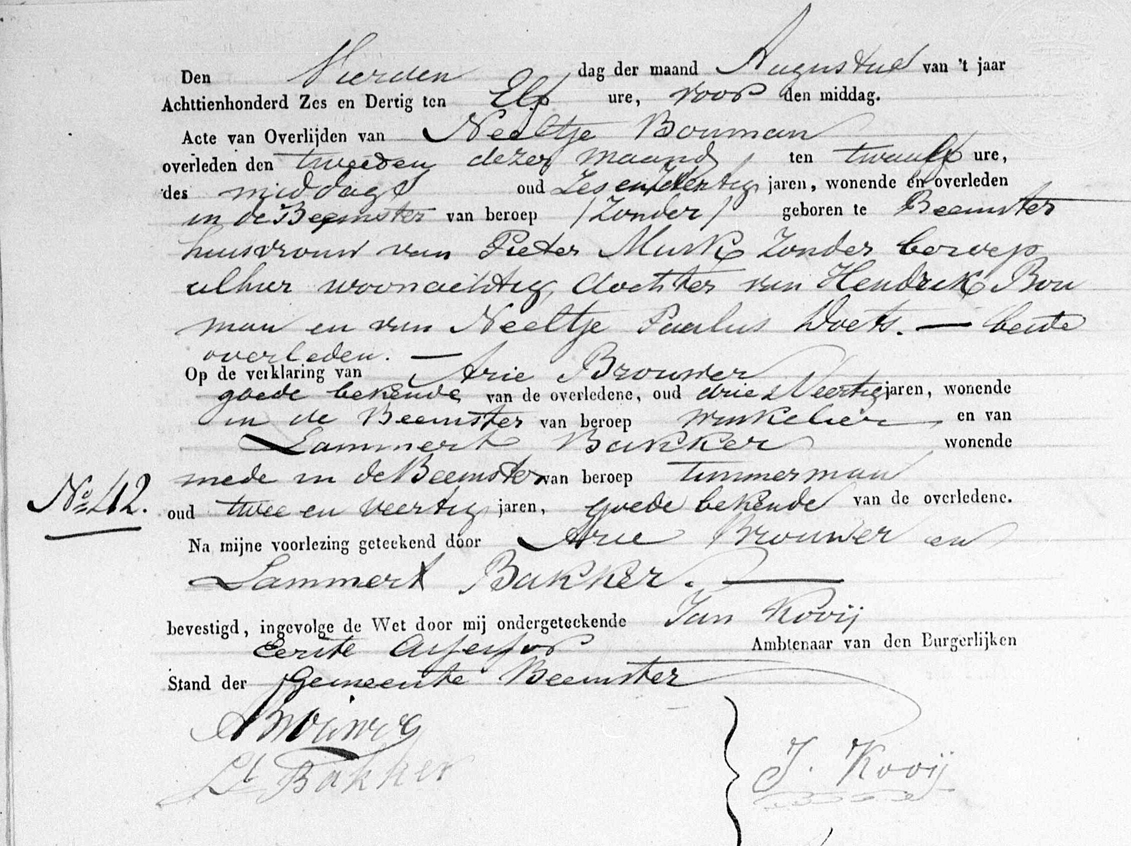 Den Vierden dag der maand Augustus van 't jaar
Achttienhonderd Zes en Dertig ten Elf ure, voor den middag.
Acte van Overlijden van Neeltje Bouman
overleden den tweeden dezer maand ten twaalf ure,
des middags oud Zes en jaren, wonende en overleden
in de Beemster van beroep /Zonder/ geboren te Beemster
huisvrouw van Pieter Musk Zonder beroep
alhier woonachtig, dochter van Hendrik Bou
man en van Neeltje Paulus Doets. — beide
overleden. —
Op de verklaring van Arie Brouwer
goede bekende van de overledene, oud drie Veertig jaren, wonende
in de Beemster van beroep winkelier en van
Lammert Bakker wonende
mede in de Beemster van beroep timmerman
No. 42.
oud twee en veertig jaren, goede bekende van de overledene.
Na mijne voorlezing geteekend door Arie Brouwer en
Lammert Bakker. —
bevestigd, ingevolge de Wet door mij ondergeteekende Jan Kooij
Eerste Assessor Ambtenaar van den Burgerlijken
Stand der Gemeente Beemster
Lt Bakker
J. Kooij